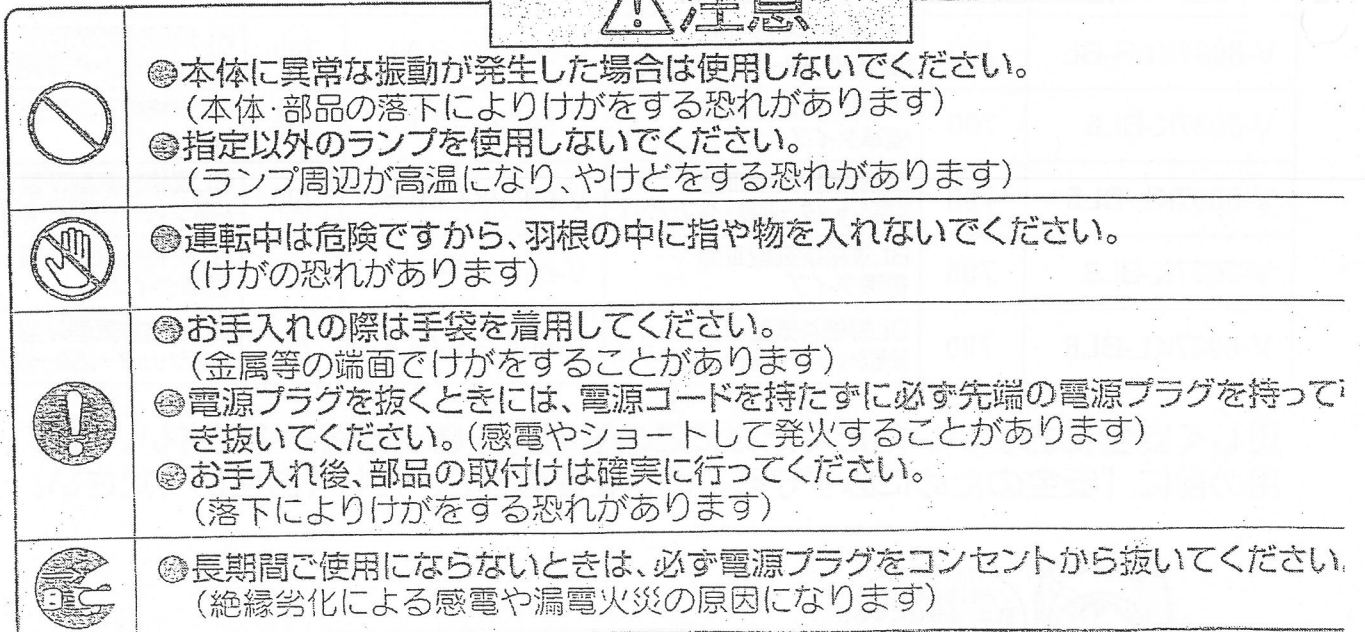 注意
●本体に異常な振動が発生した場合は使用しないでください。
(本体·部品の落下によりけがをする恐れがあります)
●指定以外のランプを使用しないでください。
(ランプ周辺が高温になり、やけどをする恐れがあります)
●運転中は危険ですから、羽根の中に指や物を入れないでください。
(けがの恐れがあります)
●お手入れの際は手袋を着用してください。
(金属等の端面でけがをすることがあります)
●電源プラグを抜くときには、電源コードを持たずに必ず先端の電源プラグを持って
き抜いてください。(感電やショートして発火することがあります)
●お手入れ後、部品の取付けは確実に行ってください。
(落下によりけがをする恐れがあります)
●長期間ご使用にならないときは、必ず電源プラグをコンセントから抜いてください
(絶縁劣化による感電や漏電火災の原因になります)